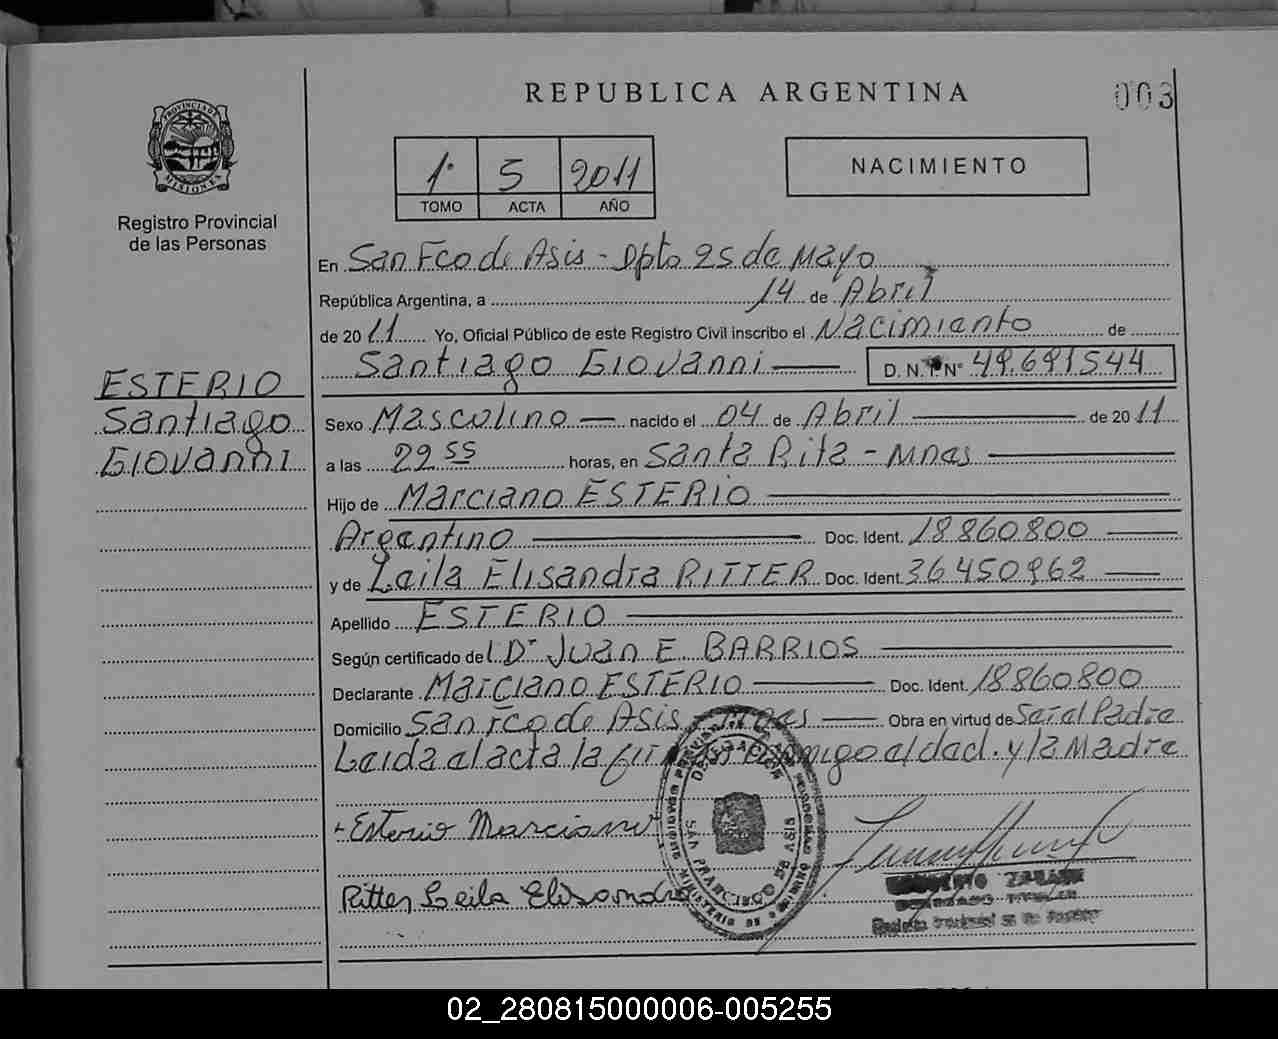 REPUBLICA ARGENTINA
003
PROVINCIA DE
MISIONES
Registro Provincial
de las Personas
1° 5 2011
TOMO ACTA AÑO
NACIMIENTO
En San Fco de Asis - Dpto 25 de Mayo
República Argentina, a 14 de Abril
de 2011 Yo, Oficial Público de este Registro Civil inscribo el Nacimiento de
Santiago Giovanni D. N. I. N° 49.691544
ESTERIO
Santiago
Giovanni
Sexo Masculino nacido el 04 de Abril de 2011
a las 22 55 horas, en Santa Rita - Mnes
Hijo de Marciano ESTERIO
Argentino Doc. Ident. 18860800
y de Laila Elisandra RITTER Doc. Ident. 36450962
Apellido ESTERIO
Según certificado del Dr Juan E. BARRIOS
Declarante Marciano ESTERIO Doc. Ident. 18860800
Domicilio San Fco de Asis Obra en virtud de Ser el Padre
Leida el acta la conmigo el dad. y la Madre
Esterio Marciano
Ritter Leila Elisandra
DELEGACION
SAN FRANCISCO DE ASIS
MINISTERIO DE GOBIERNO
02_280815000006-005255